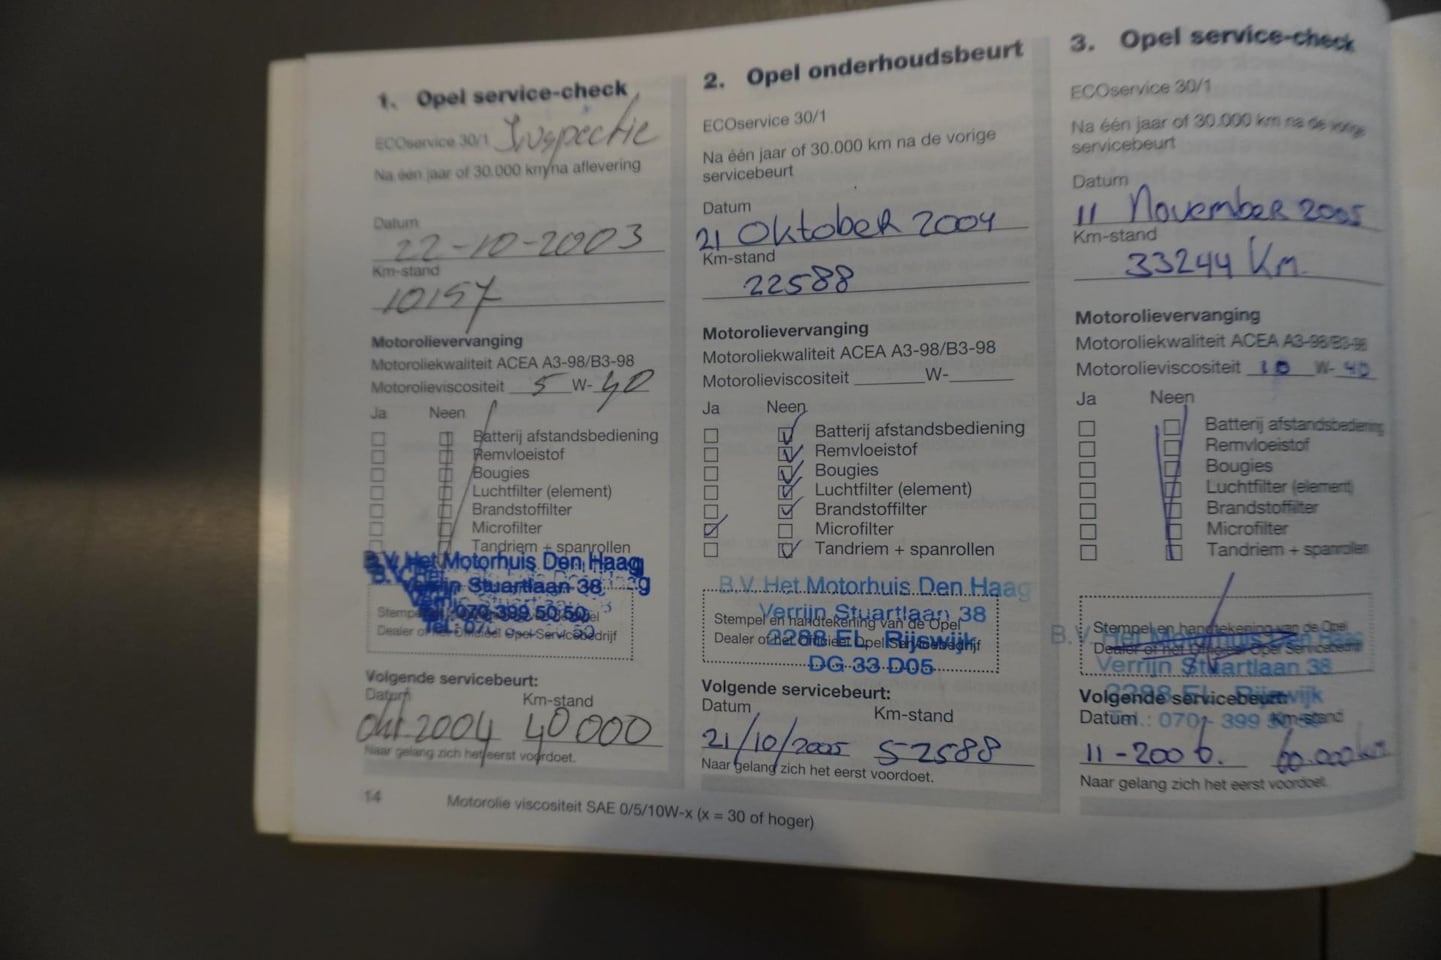 1. Opel service-check
ECOservice 30/1 Inspectie
Na één jaar of 30.000 km na aflevering
Datum
22-10-2003
Km-stand
10157
Motorolievervanging
Motoroliekwaliteit ACEA A3-98/B3-98
Motorolieviscositeit 5 W- 40
Ja Neen
Batterij afstandsbediening
Remvloeistof
Bougies
Luchtfilter (element)
Brandstoffilter
Microfilter
Tandriem + spanrollen
B.V. Het Motorhuis Den Haag
Verrijn Stuartlaan 38
Tel.: 070-399 50 50
Stempel
Dealer of het Officieel Opel Servicebedrijf
Volgende servicebeurt:
Datum Km-stand
okt 2004 40000
Naar gelang zich het eerst voordoet.
14
2. Opel onderhoudsbeurt
ECOservice 30/1
Na één jaar of 30.000 km na de vorige
servicebeurt
Datum
21 Oktober 2004
Km-stand
22588
Motorolievervanging
Motoroliekwaliteit ACEA A3-98/B3-98
Motorolieviscositeit W-
Ja Neen
Batterij afstandsbediening
Remvloeistof
Bougies
Luchtfilter (element)
Brandstoffilter
Microfilter
Tandriem + spanrollen
B.V. Het Motorhuis Den Haag
Verrijn Stuartlaan 38
Stempel en handtekening van de Opel
2288 EL Rijswijk
Dealer of het Officieel Opel Servicebedrijf
DG 33 D05
Volgende servicebeurt:
Datum Km-stand
21/10/2005 52588
Naar gelang zich het eerst voordoet.
3. Opel service-check
ECOservice 30/1
Na één jaar of 30.000 km na de vorige
servicebeurt
Datum
11 November 2005
Km-stand
33244 Km.
Motorolievervanging
Motoroliekwaliteit ACEA A3-98/B3-98
Motorolieviscositeit 10 W- 40
Ja Neen
Batterij afstandsbediening
Remvloeistof
Bougies
Luchtfilter (element)
Brandstoffilter
Microfilter
Tandriem + spanrollen
Stempel en handtekening van de Opel
B.V. Het Motorhuis Den Haag
Dealer of het Officieel Opel Servicebedrijf
Verrijn Stuartlaan 38
2288 EL Rijswijk
Volgende servicebeurt:
Datum Km-stand
11-2006. 60.000km.
Naar gelang zich het eerst voordoet.
Motorolie viscositeit SAE 0/5/10W-x (x = 30 of hoger)